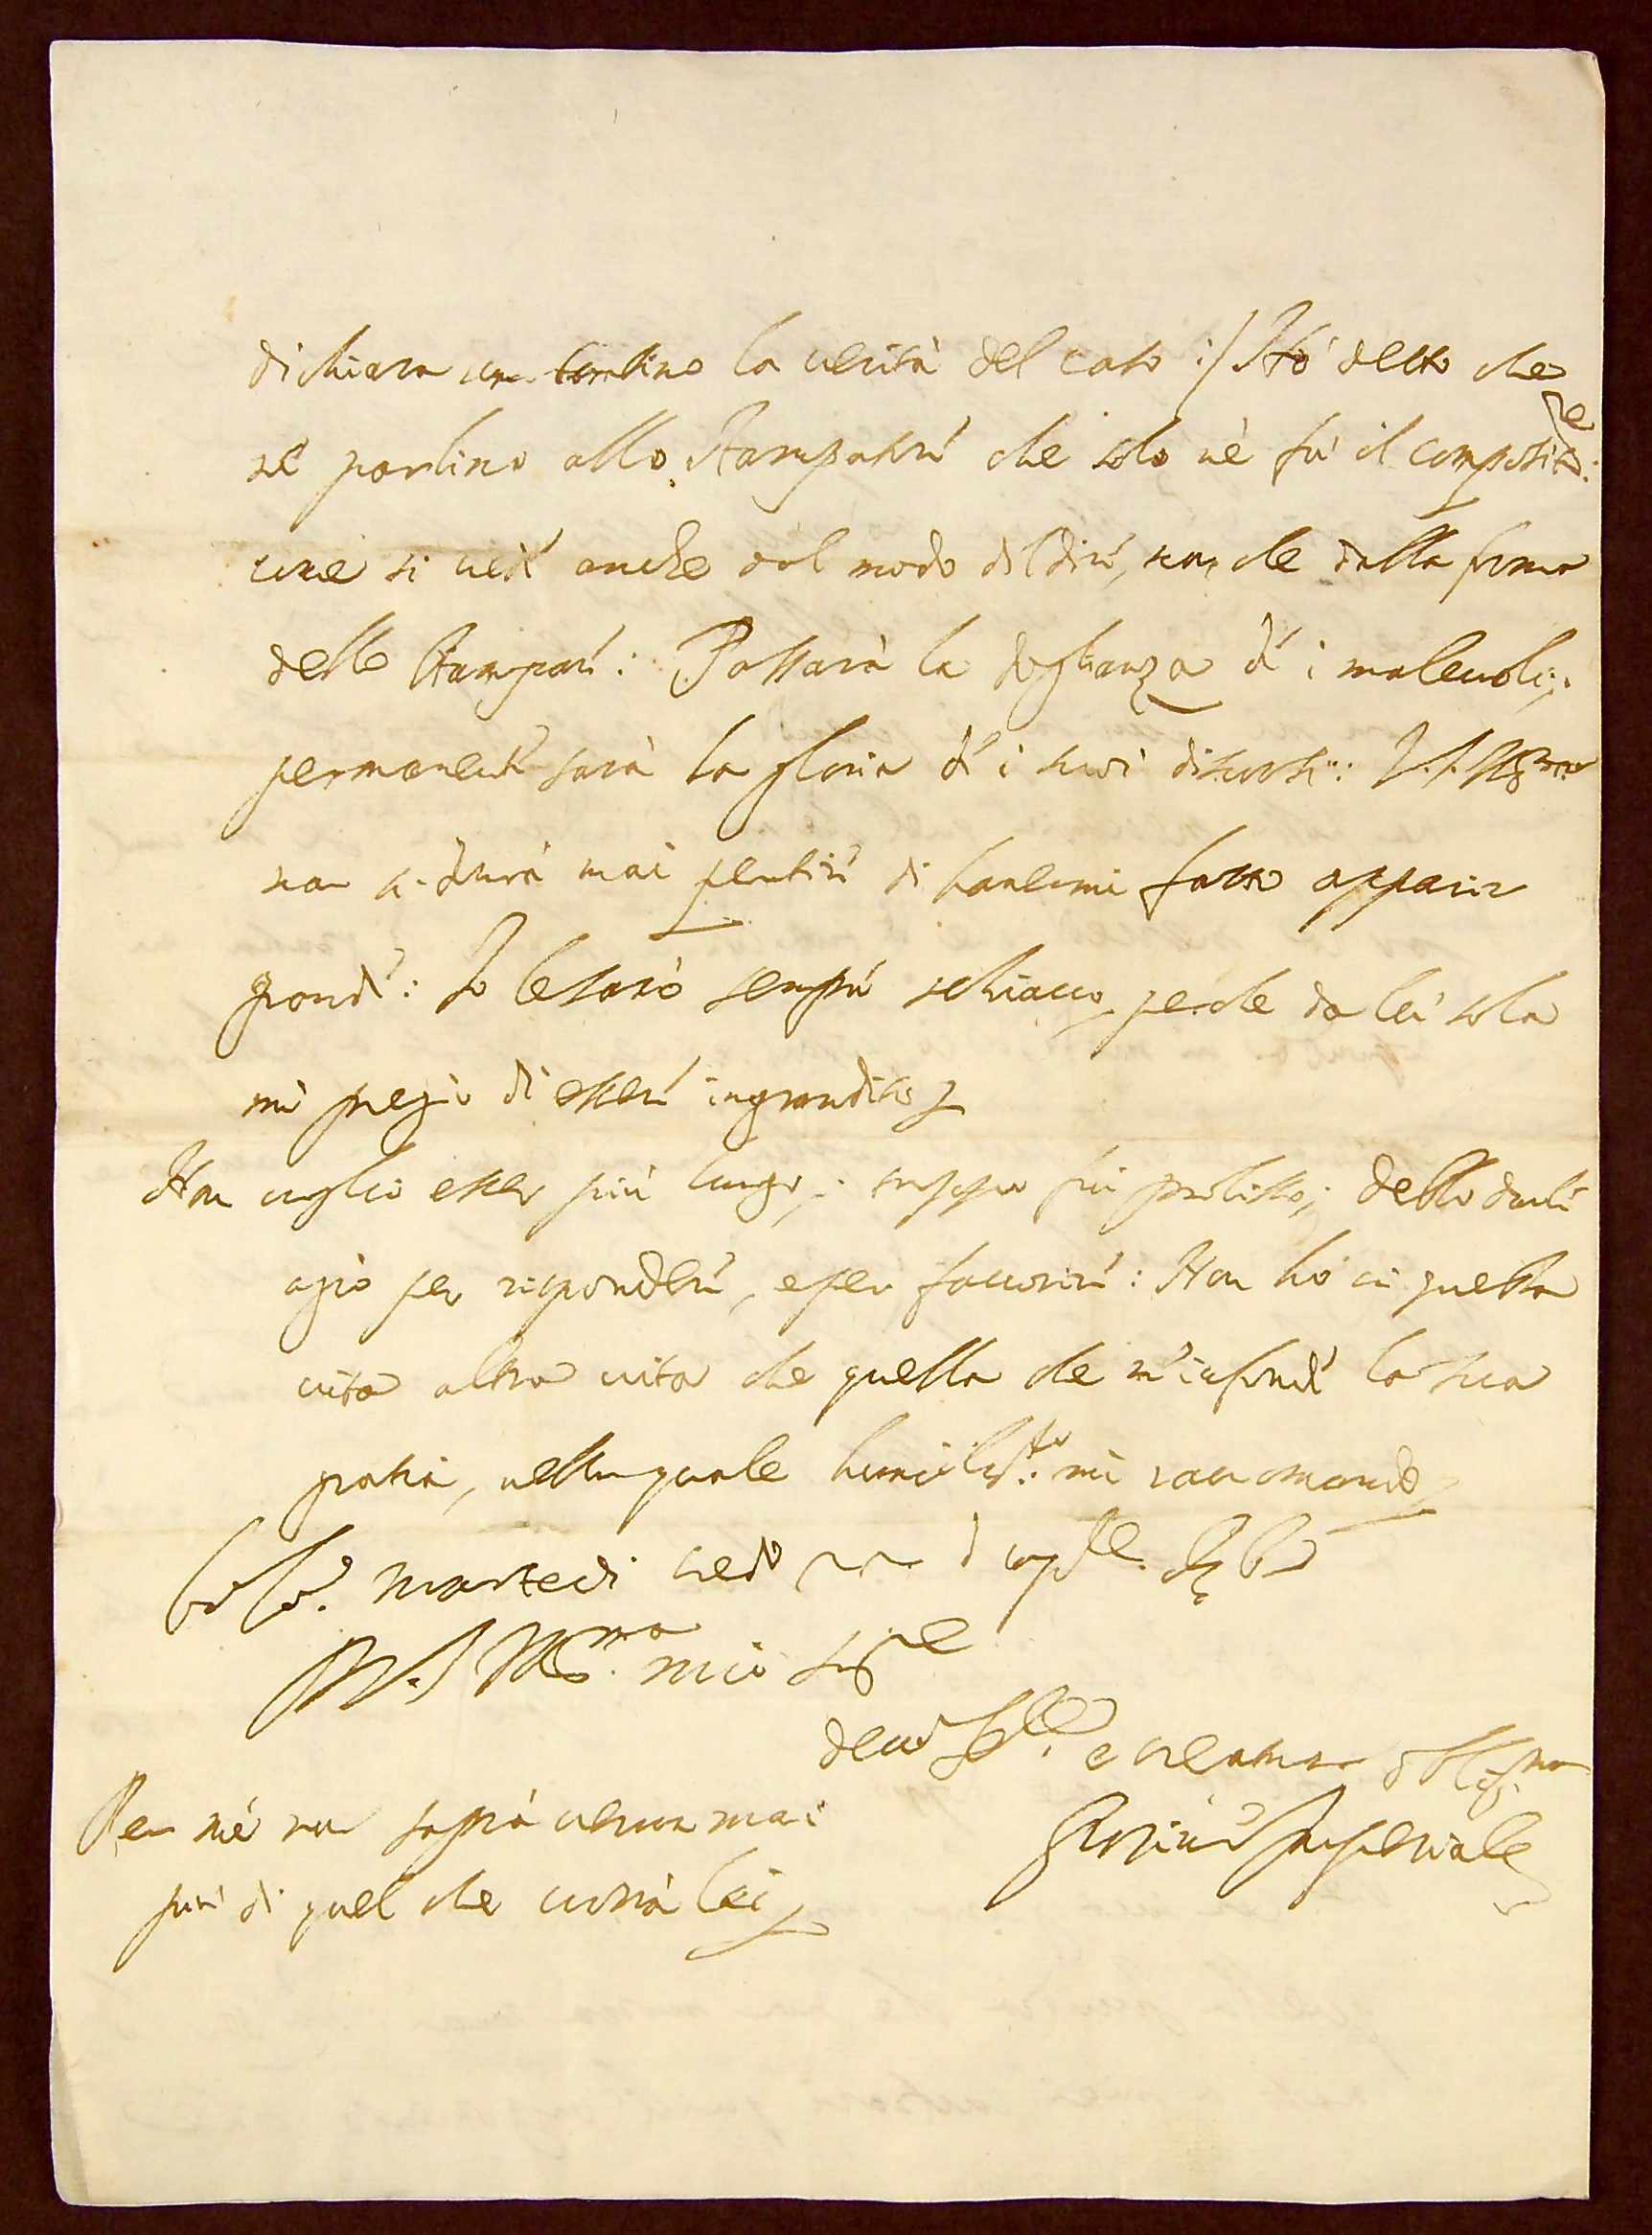 dichiara un tantino la verità del caso :/ Hò detto che
ne parlino allo Stampatore che solo nè fù il compositore:
come si vede anche dal modo di dire, non che dalla forma
delle stampare: Passarà la doglianza de i malevoli;
permanente sarà la gloria de i suoi discorsi: V.S. Ill.ma
non si dourà mai pentire di hauermi fatto apparir
grande: Io le sarò sempre schiauo, perche da lei sola
mi pregio di essere ingrandito
Non uoglio esser più lungo; troppo fui prolisso; deuo darle
agio per rispondere, e per fauorire: Non hò in questa
uita altra uita che quella che m'infonde la sua
gratia, nella quale humilis.te mi raccomando
martedi credo
V.S. Ill.ma mio Sig.re
deuo e creatura oblig.mo
Imperiale
Per mè non saprà ueruno mai
più di quel che uorrà lei